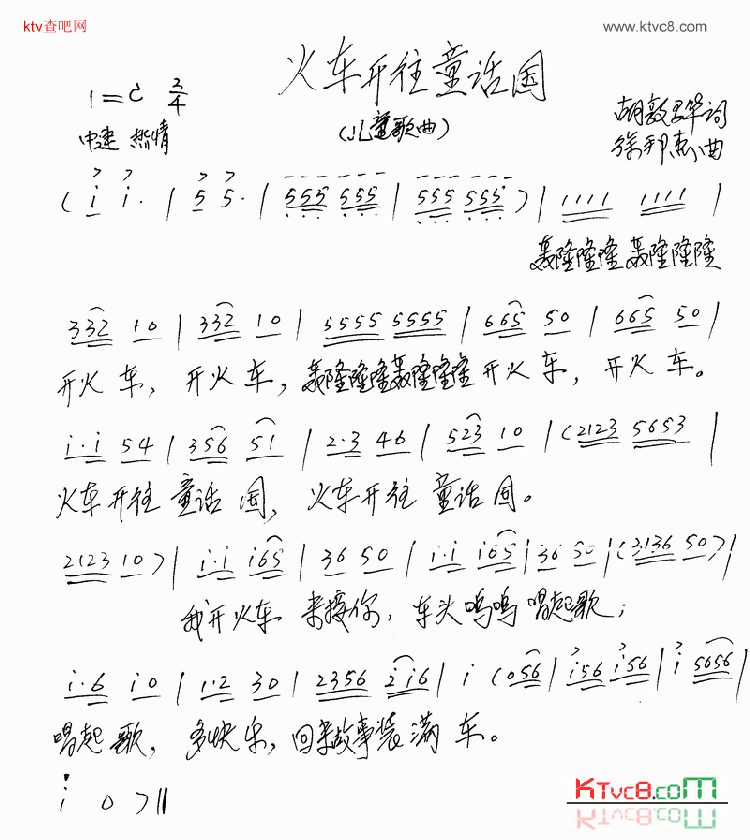 ktv查吧网 www.ktvc8.com
火车开往童话国
1=C 2/4
(儿童歌曲)
中速 热情
胡敦华词
徐邦杰曲
( i i· | 5 5· | 555 555 | 555 555 ) | 1111 1111 |
轰隆隆隆轰隆隆隆
332 10 | 332 10 | 5555 5555 | 665 50 | 665 50 |
开火车，开火车，轰隆隆隆轰隆隆隆开火车，开火车。
i·i 54 | 356 51 | 2·3 46 | 523 10 | (2123 5653 |
火车开往童话国，火车开往童话国。
2123 10) | i·i i65 | 36 50 | i·i i65 | 36 50 | (3136 50) |
我开火车来接你，车头呜呜唱起歌；
i·6 i0 | 1·2 30 | 2356 2i6 | i (056 | i56 i56 | i 5656 |
唱起歌，多快乐，回来故事装满车。
i 0 ) ||
KTvc8.com